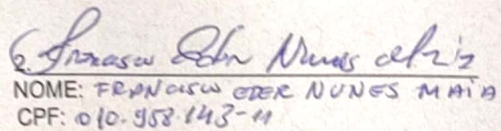 2. Francisco Eder Nunes Maia
NOME: FRANCISCO EDER NUNES MAIA
CPF: 010.958.143-11